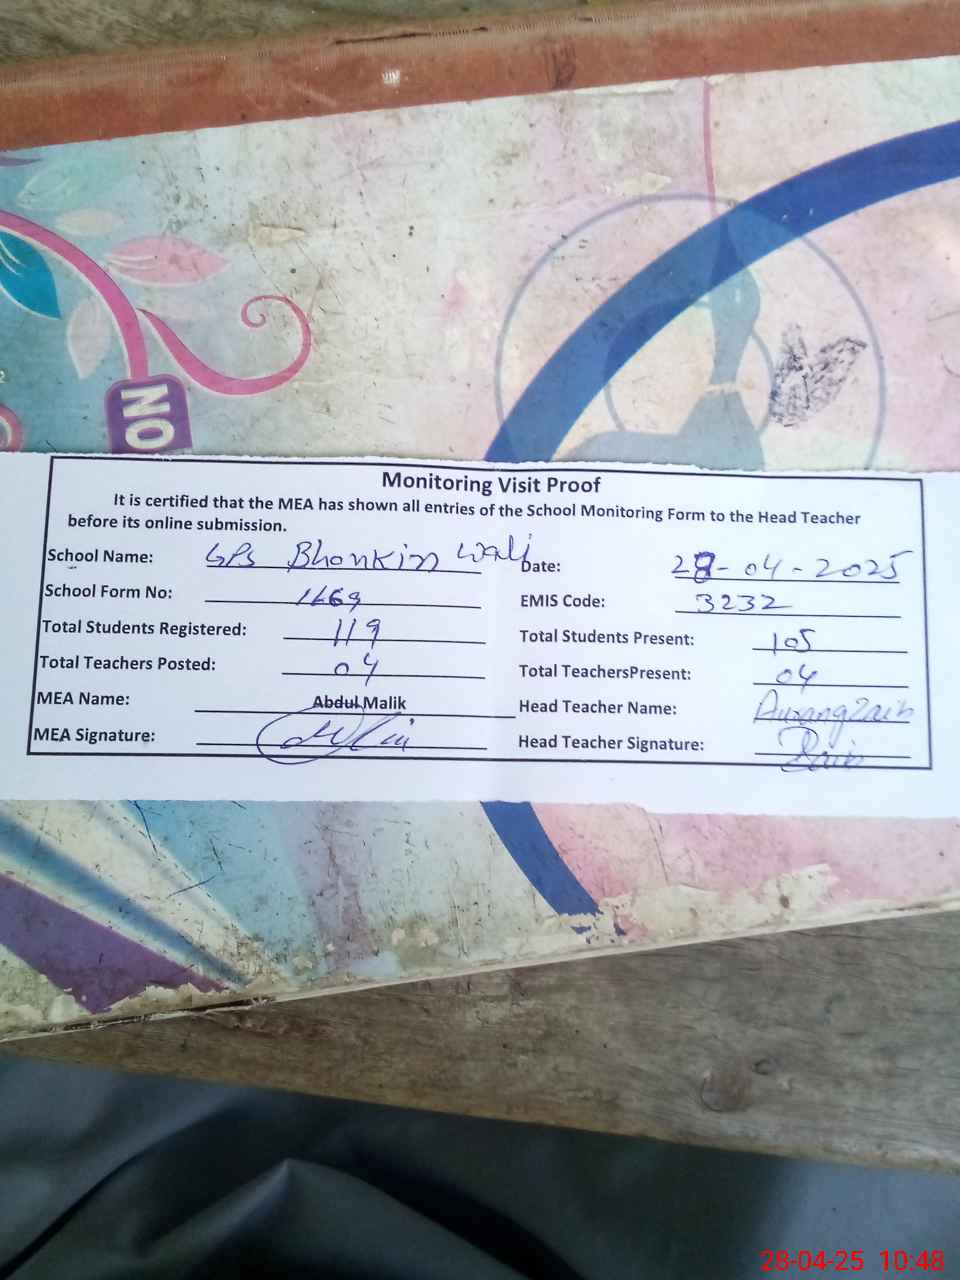 NO
Monitoring Visit Proof
It is certified that the MEA has shown all entries of the School Monitoring Form to the Head Teacher
before its online submission.
School Name: GPS Bhonkin Wali Date: 28-04-2025
School Form No: 1669 EMIS Code: 3232
Total Students Registered: 119 Total Students Present: 105
Total Teachers Posted: 04 Total TeachersPresent: 04
MEA Name: Abdul Malik Head Teacher Name: Aurangzaib
MEA Signature: Head Teacher Signature: Zaib
28-04-25 10:48